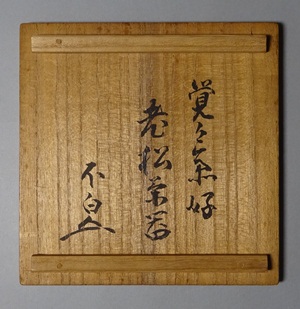 覚々斎好
老松茶器
不白